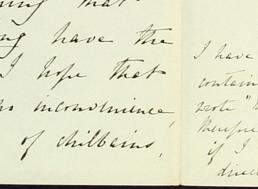 that
have the
I hope that
inconvenience,
of chilbains,
I have
contain
wrote "
therefore
if I